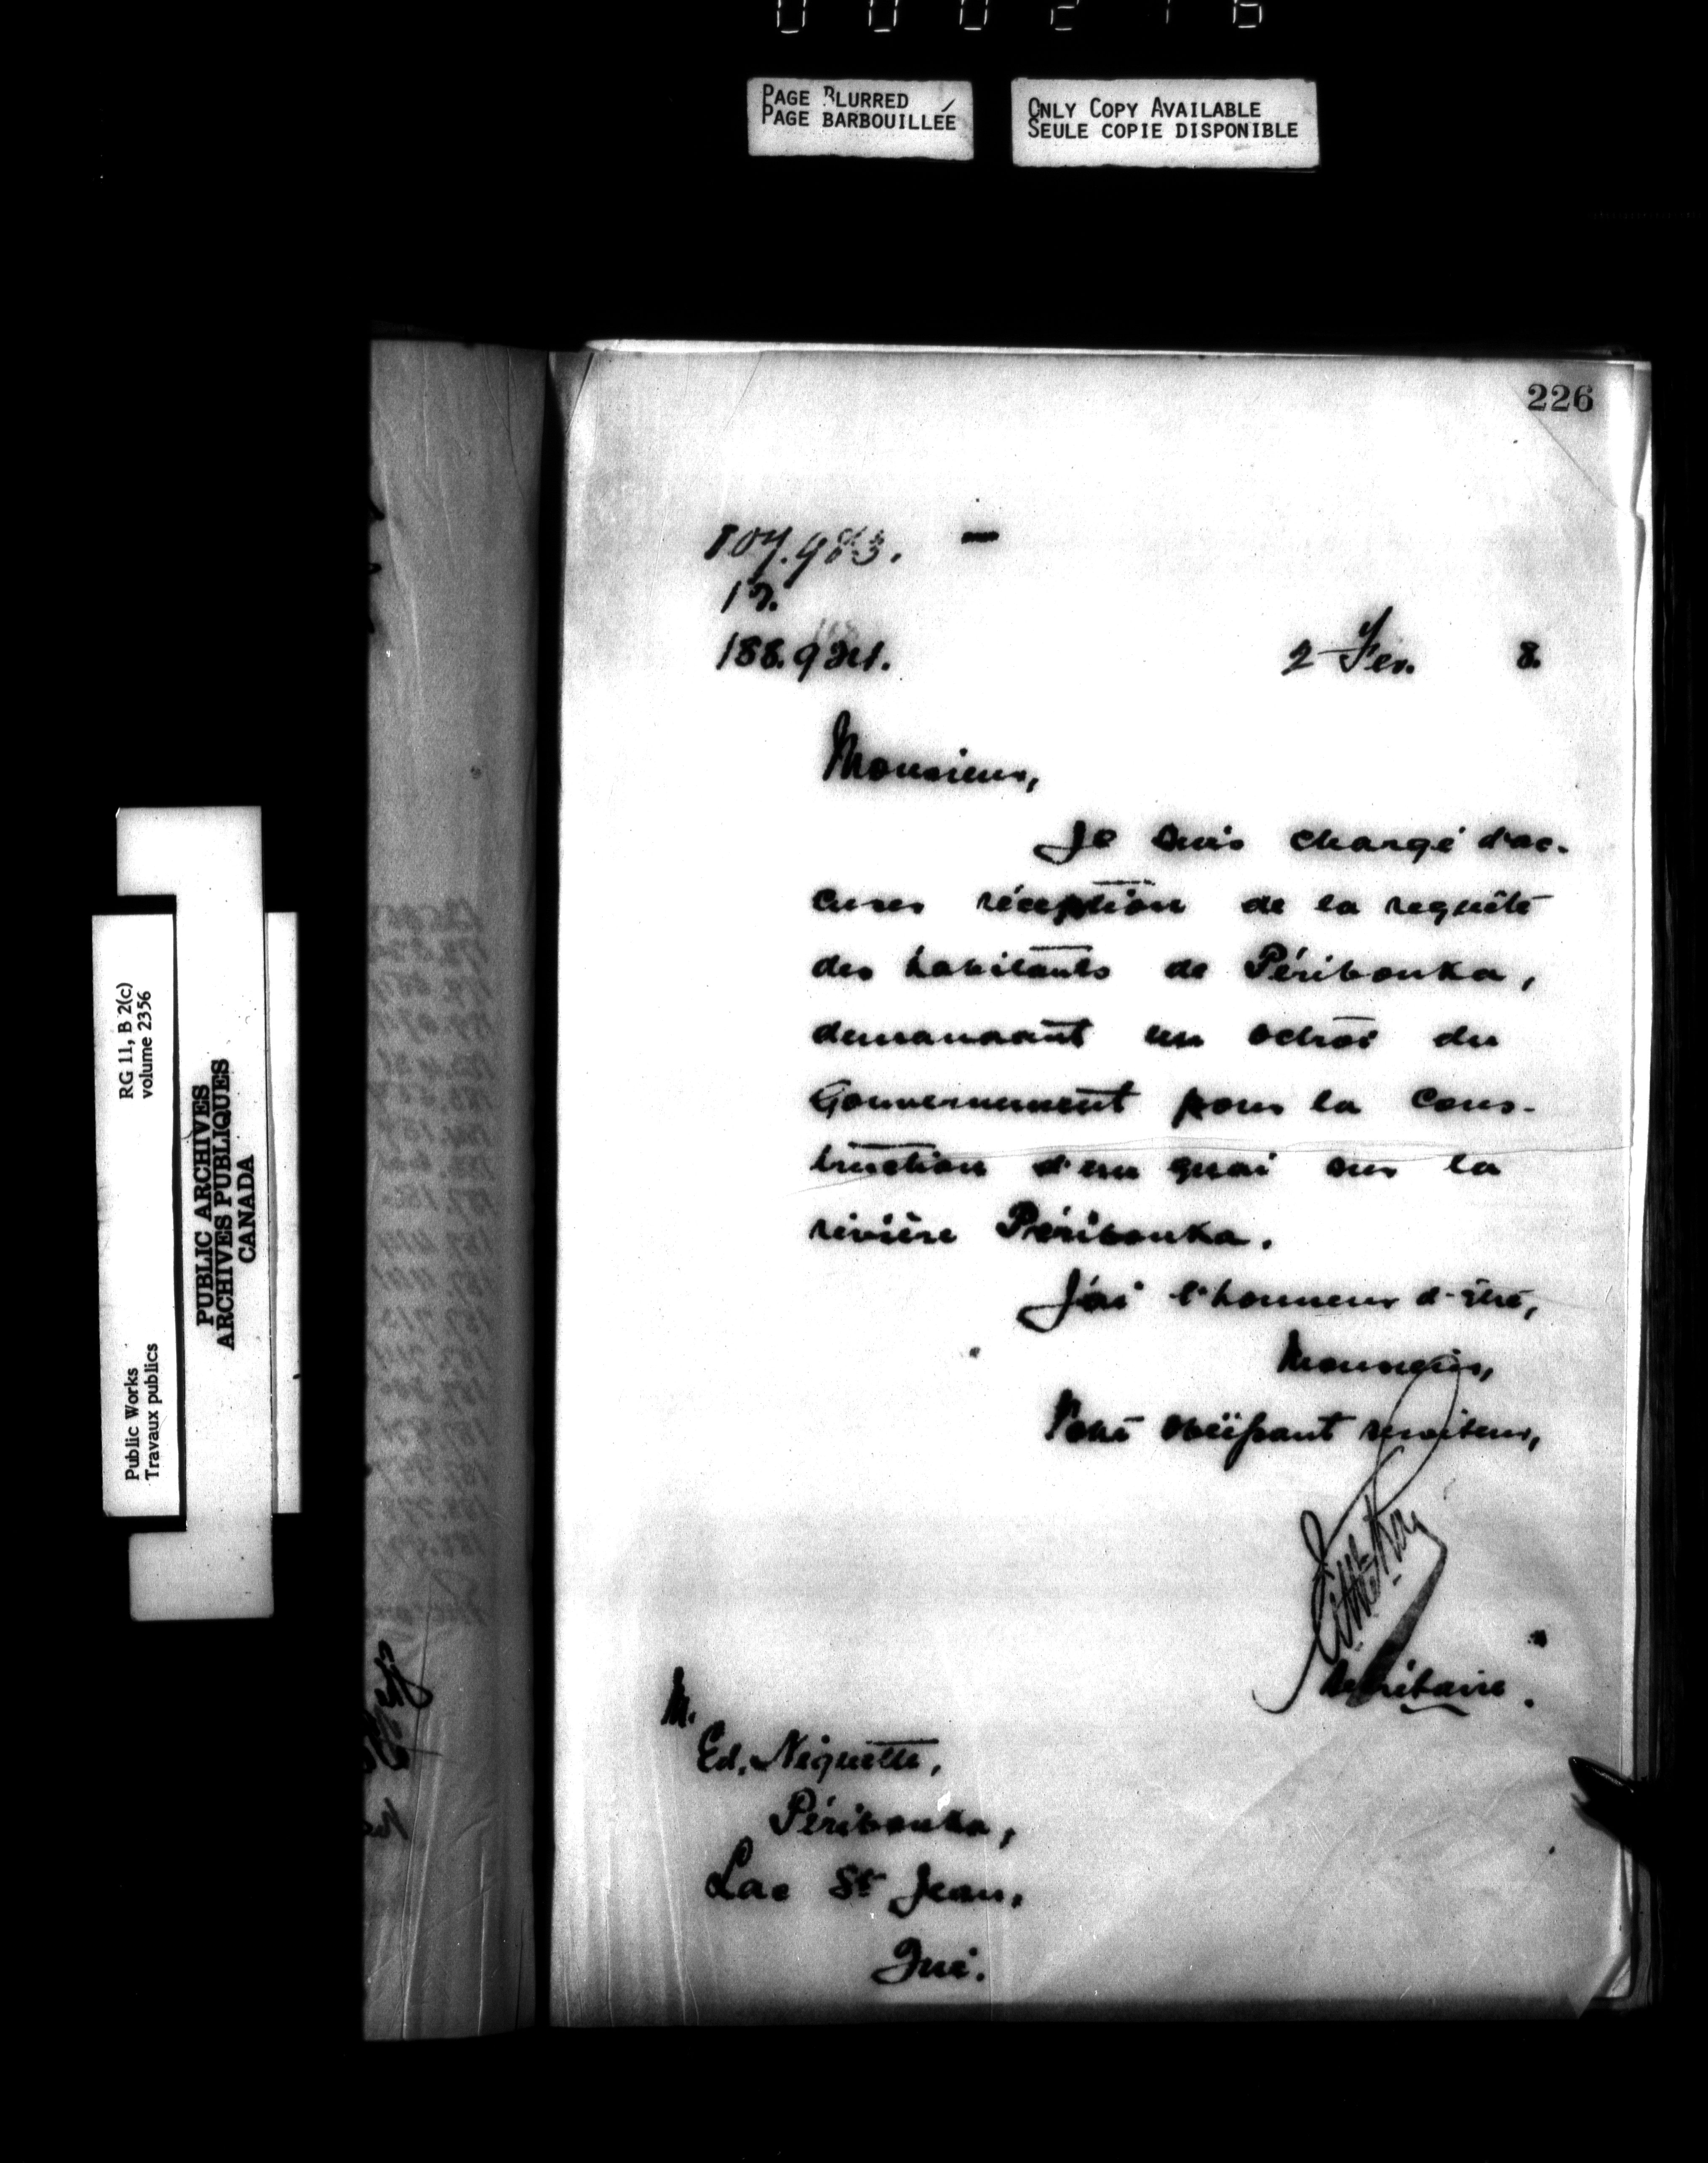 PAGE BLURRED
PAGE BARBOUILLÉE
ONLY COPY AVAILABLE
SEULE COPIE DISPONIBLE
226
107.983.
188.921.
2 Fev. 8.
Monsieur,
Je suis chargé d'ac-
cuser réception de la requête
des habitants de Péribonka,
demandant un octroi du
Gouvernement pour la cons-
truction d'un quai sur la
rivière Péribonka.
J'ai l'honneur d'être,
Monsieur,
Votre obéissant serviteur,
Secrétaire.
M.
Ed. Niquette,
Péribonka,
Lac St Jean,
Qué.
RG 11, B 2(c)
volume 2356
Public Works
Travaux publics
PUBLIC ARCHIVES
ARCHIVES PUBLIQUES
CANADA